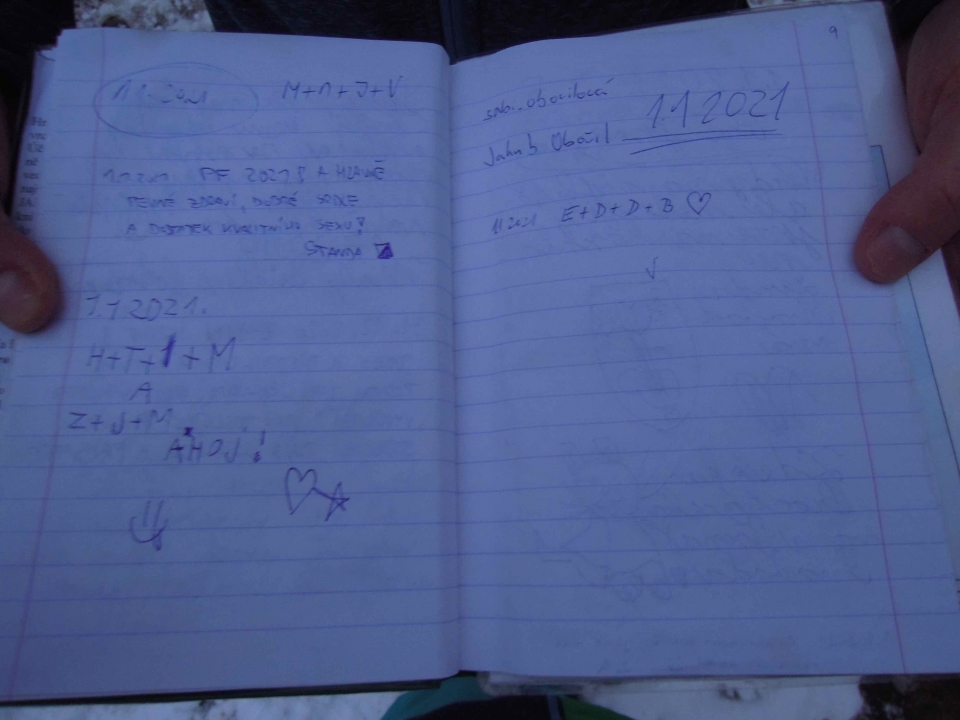 1.1.2021 M+M+J+V
1.1.2021 PF 2021! A HLAVNĚ
PEVNÉ ZDRAVÍ, DOBRÉ SRDCE
A DOSTATEK KVALITNÍHO SEXU!
STANDA
1.1 2021.
H+T+1+M
A
Z+J+M
AHOJ!
9
Obořilová
Jakub Obořil 1.1 2021
1.1 2021 E+D+D+B ♡